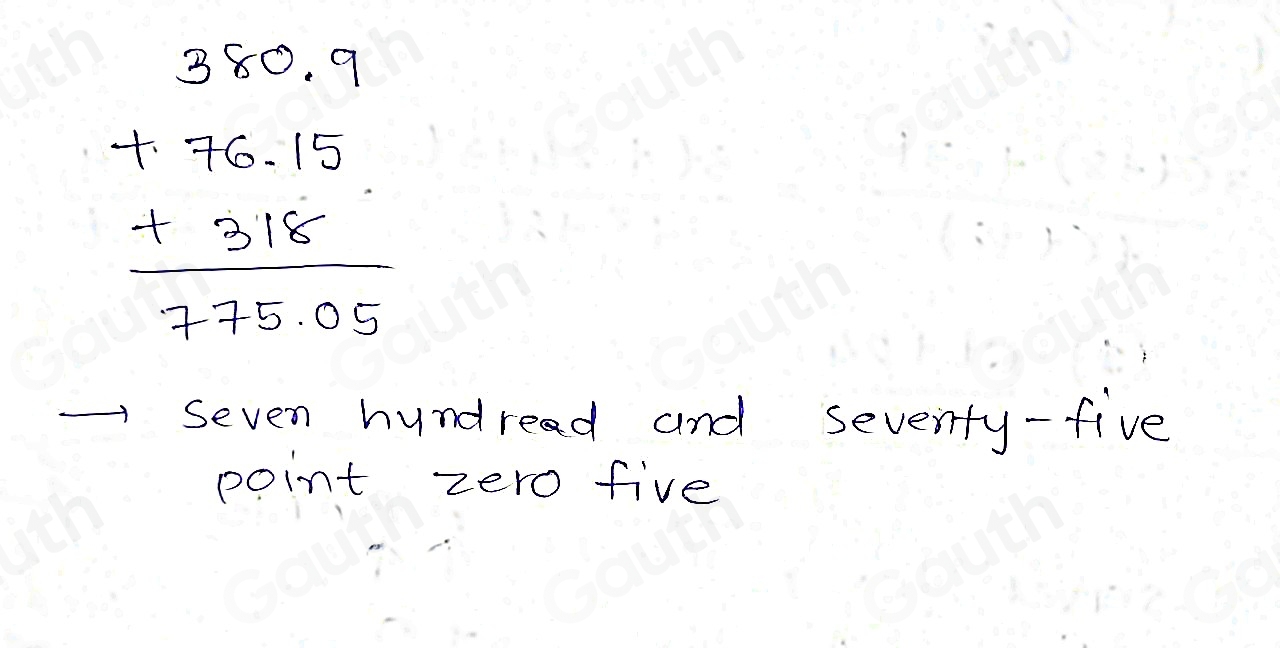 380.9
+ 76.15
+ 318
775.05
→ seven hundread and seventy-five
point zero five